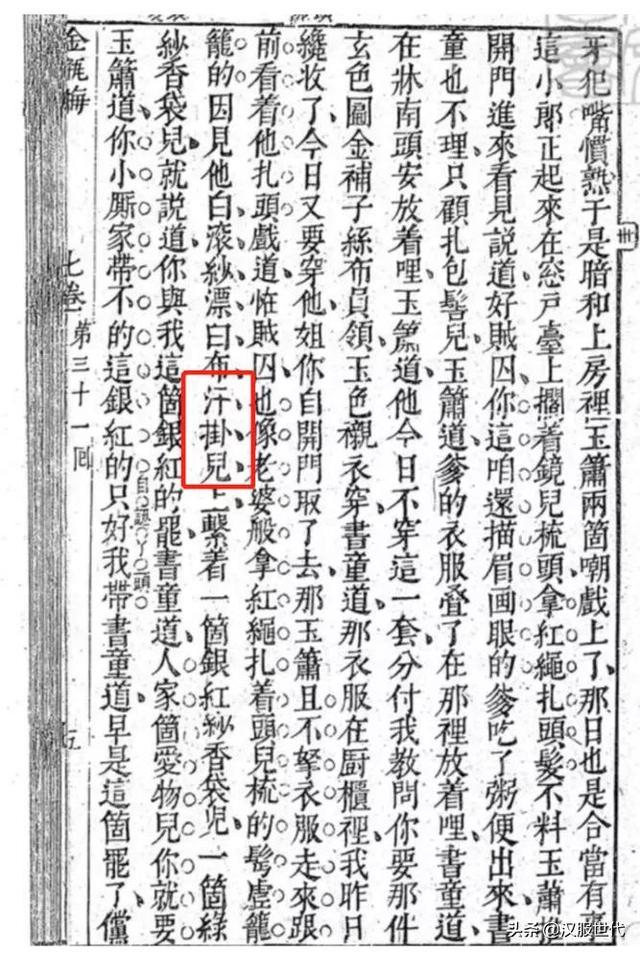 牙犯嘴慣熟于是暗和上房裡玉簫兩箇嘲戲上了那日也是合當有事
這小郎正起來在窓戸臺上擱着鏡兒梳頭拿紅繩扎頭髮不料玉簫推
開門進來看見說道好賊囚你這咱還描眉画眼的爹吃了粥便出來書
童也不理只顧扎包髻兒玉簫道爹的衣服叠了在那裡放着哩書童道
在牀南頭安放着哩玉簫道他今日不穿這一套分付我教問你要那件
玄色匾金補子絲布員領玉色襯衣穿書童道那衣服在厨櫃裡我昨日
纔收了今日又要穿他姐你自開門取了去那玉簫且不拏衣服走來跟
前看着他扎頭戲道怪賊囚也像老婆般拿紅繩扎着頭兒梳的髩虛籠
籠的因見他白滚紗漂白布汗掛兒上繫着一箇銀紅紗香袋兒一箇綠
紗香袋兒就說道你與我這箇銀紅的罷書童道人家箇愛物兒你就要
玉簫道你小厮家帶不的這銀紅的只好我帶書童道早是這箇罷了儻
金瓶梅
七卷
第三十一回
五
头条 @汉服世代